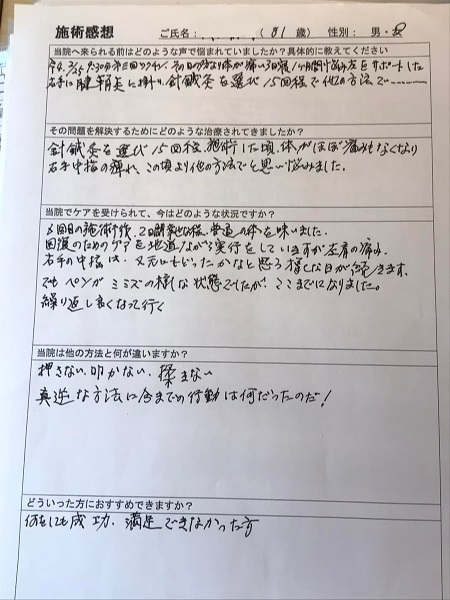 施術感想 ご氏名: (81歳) 性別: 男・女
当院へ来られる前はどのような声で悩まれていましたか?具体的に教えてください
右手に腱鞘炎に 針鍼灸を選び15回程で他の方法で
その問題を解決するためにどのような治療されてきましたか?
針鍼灸を選び15回程、施術した頃、体がほぼ痛みもなくなり
右手中指の痺れ、この頃より他の方法でと思い悩みました。
当院でケアを受けられて、今はどのような状況ですか?
3回目の施術後、2日間程、普通の体を味いました。
回復のためのケアを地道ながら実行をしていますが左肩の痛み、
右手の中指は、又元にもどったかなと思う様な日が続きます。
でもペンがミミズの様な状態でしたが、ここまでになりました。
繰り返し良くなって行く
当院は他の方法と何が違いますか?
押さない、叩かない、揉まない
真逆な方法に今までの行動は何だったのだ!
どういった方におすすめできますか?
何をしても成功、満足できなかった方